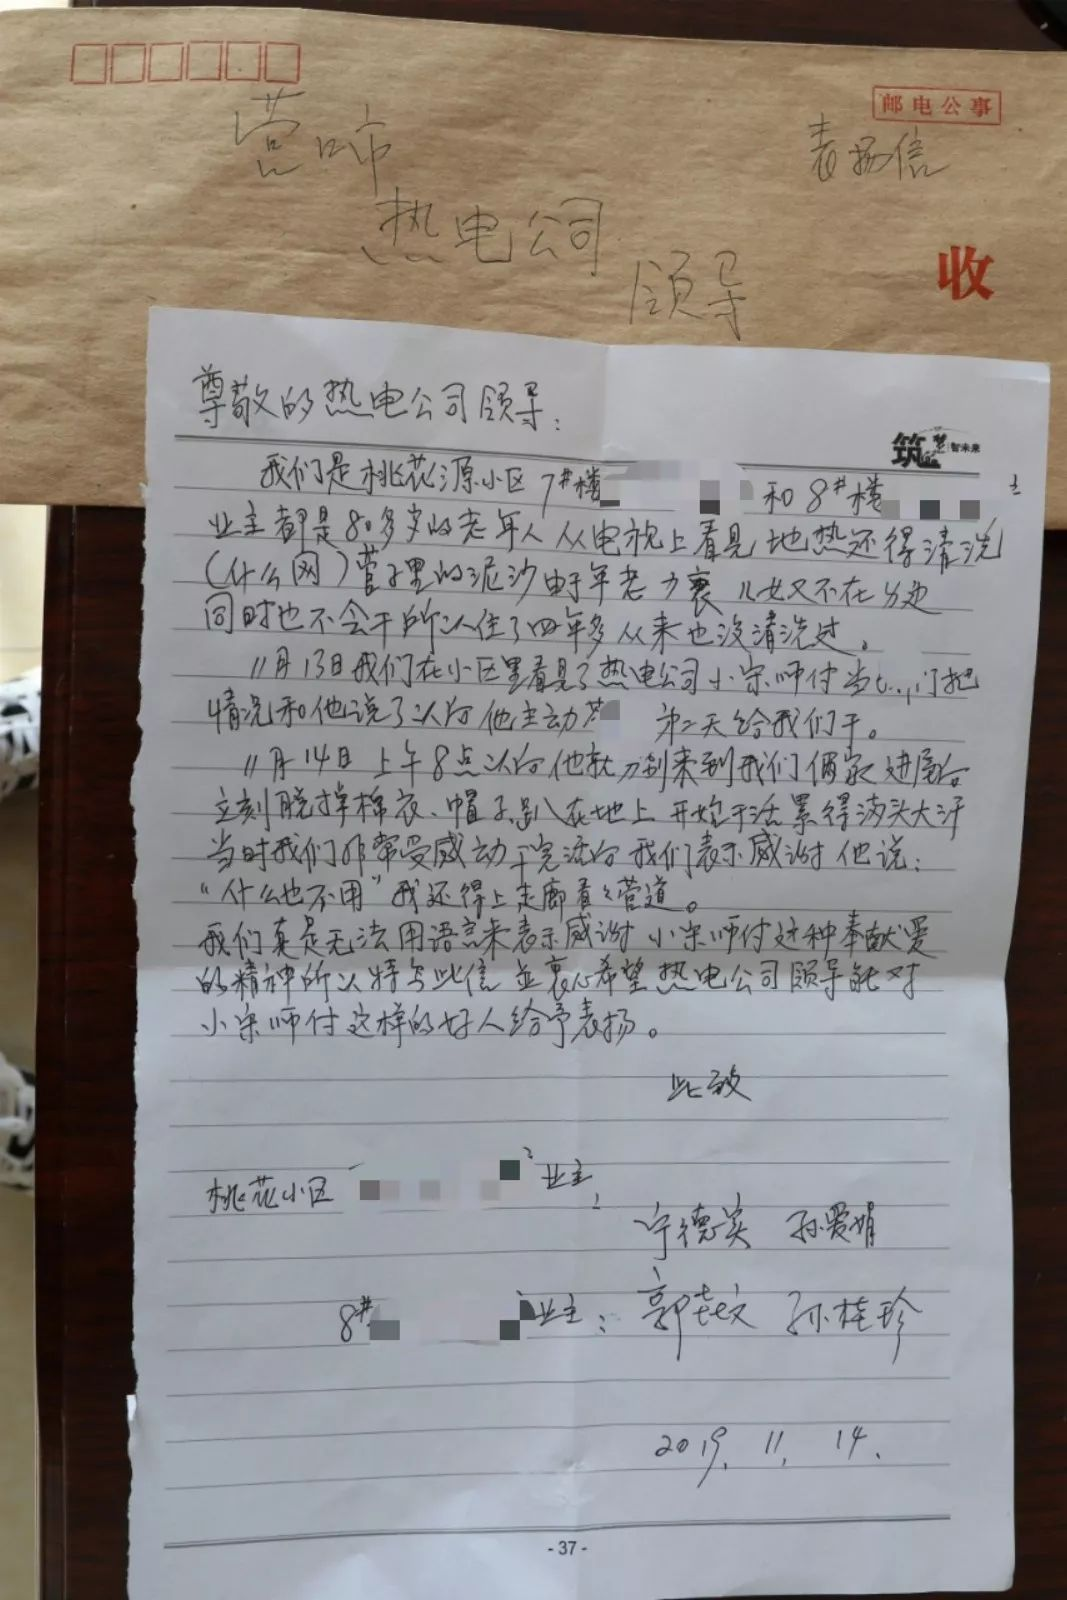 邮电公事
营口市
表扬信
热电公司
收
领导
尊敬的热电公司领导：
筑 智未来
我们是桃花源小区7#楼 和8#楼
业主都是80多岁的老年人从电视上看见地热还得清洗
(什么网)管子里的泥沙由于年老力衰儿女又不在身边
同时也不会干所以住了四年多从来也没清洗过。
11月13日我们在小区里看见了热电公司小宋师付当 们把
情况和他说了以后他主动 第二天给我们干。
11月14日上午8点以后他就分别来到我们俩家进屋后
立刻脱掉棉衣、帽子趴在地上开始干活累得满头大汗
当时我们非常受感动干完活后我们表示感谢他说：
“什么也不用”我还得上走廊看々管道。
我们真是无法用语言来表示感谢小宋师付这种奉献爱
的精神所以特写此信并衷心希望热电公司领导能对
小宋师付这样的好人给予表扬。
此致
桃花小区 业主
宁德 孙爱娟
8# 业主：郭 文 孙桂珍
2019.11.14.
- 37 -